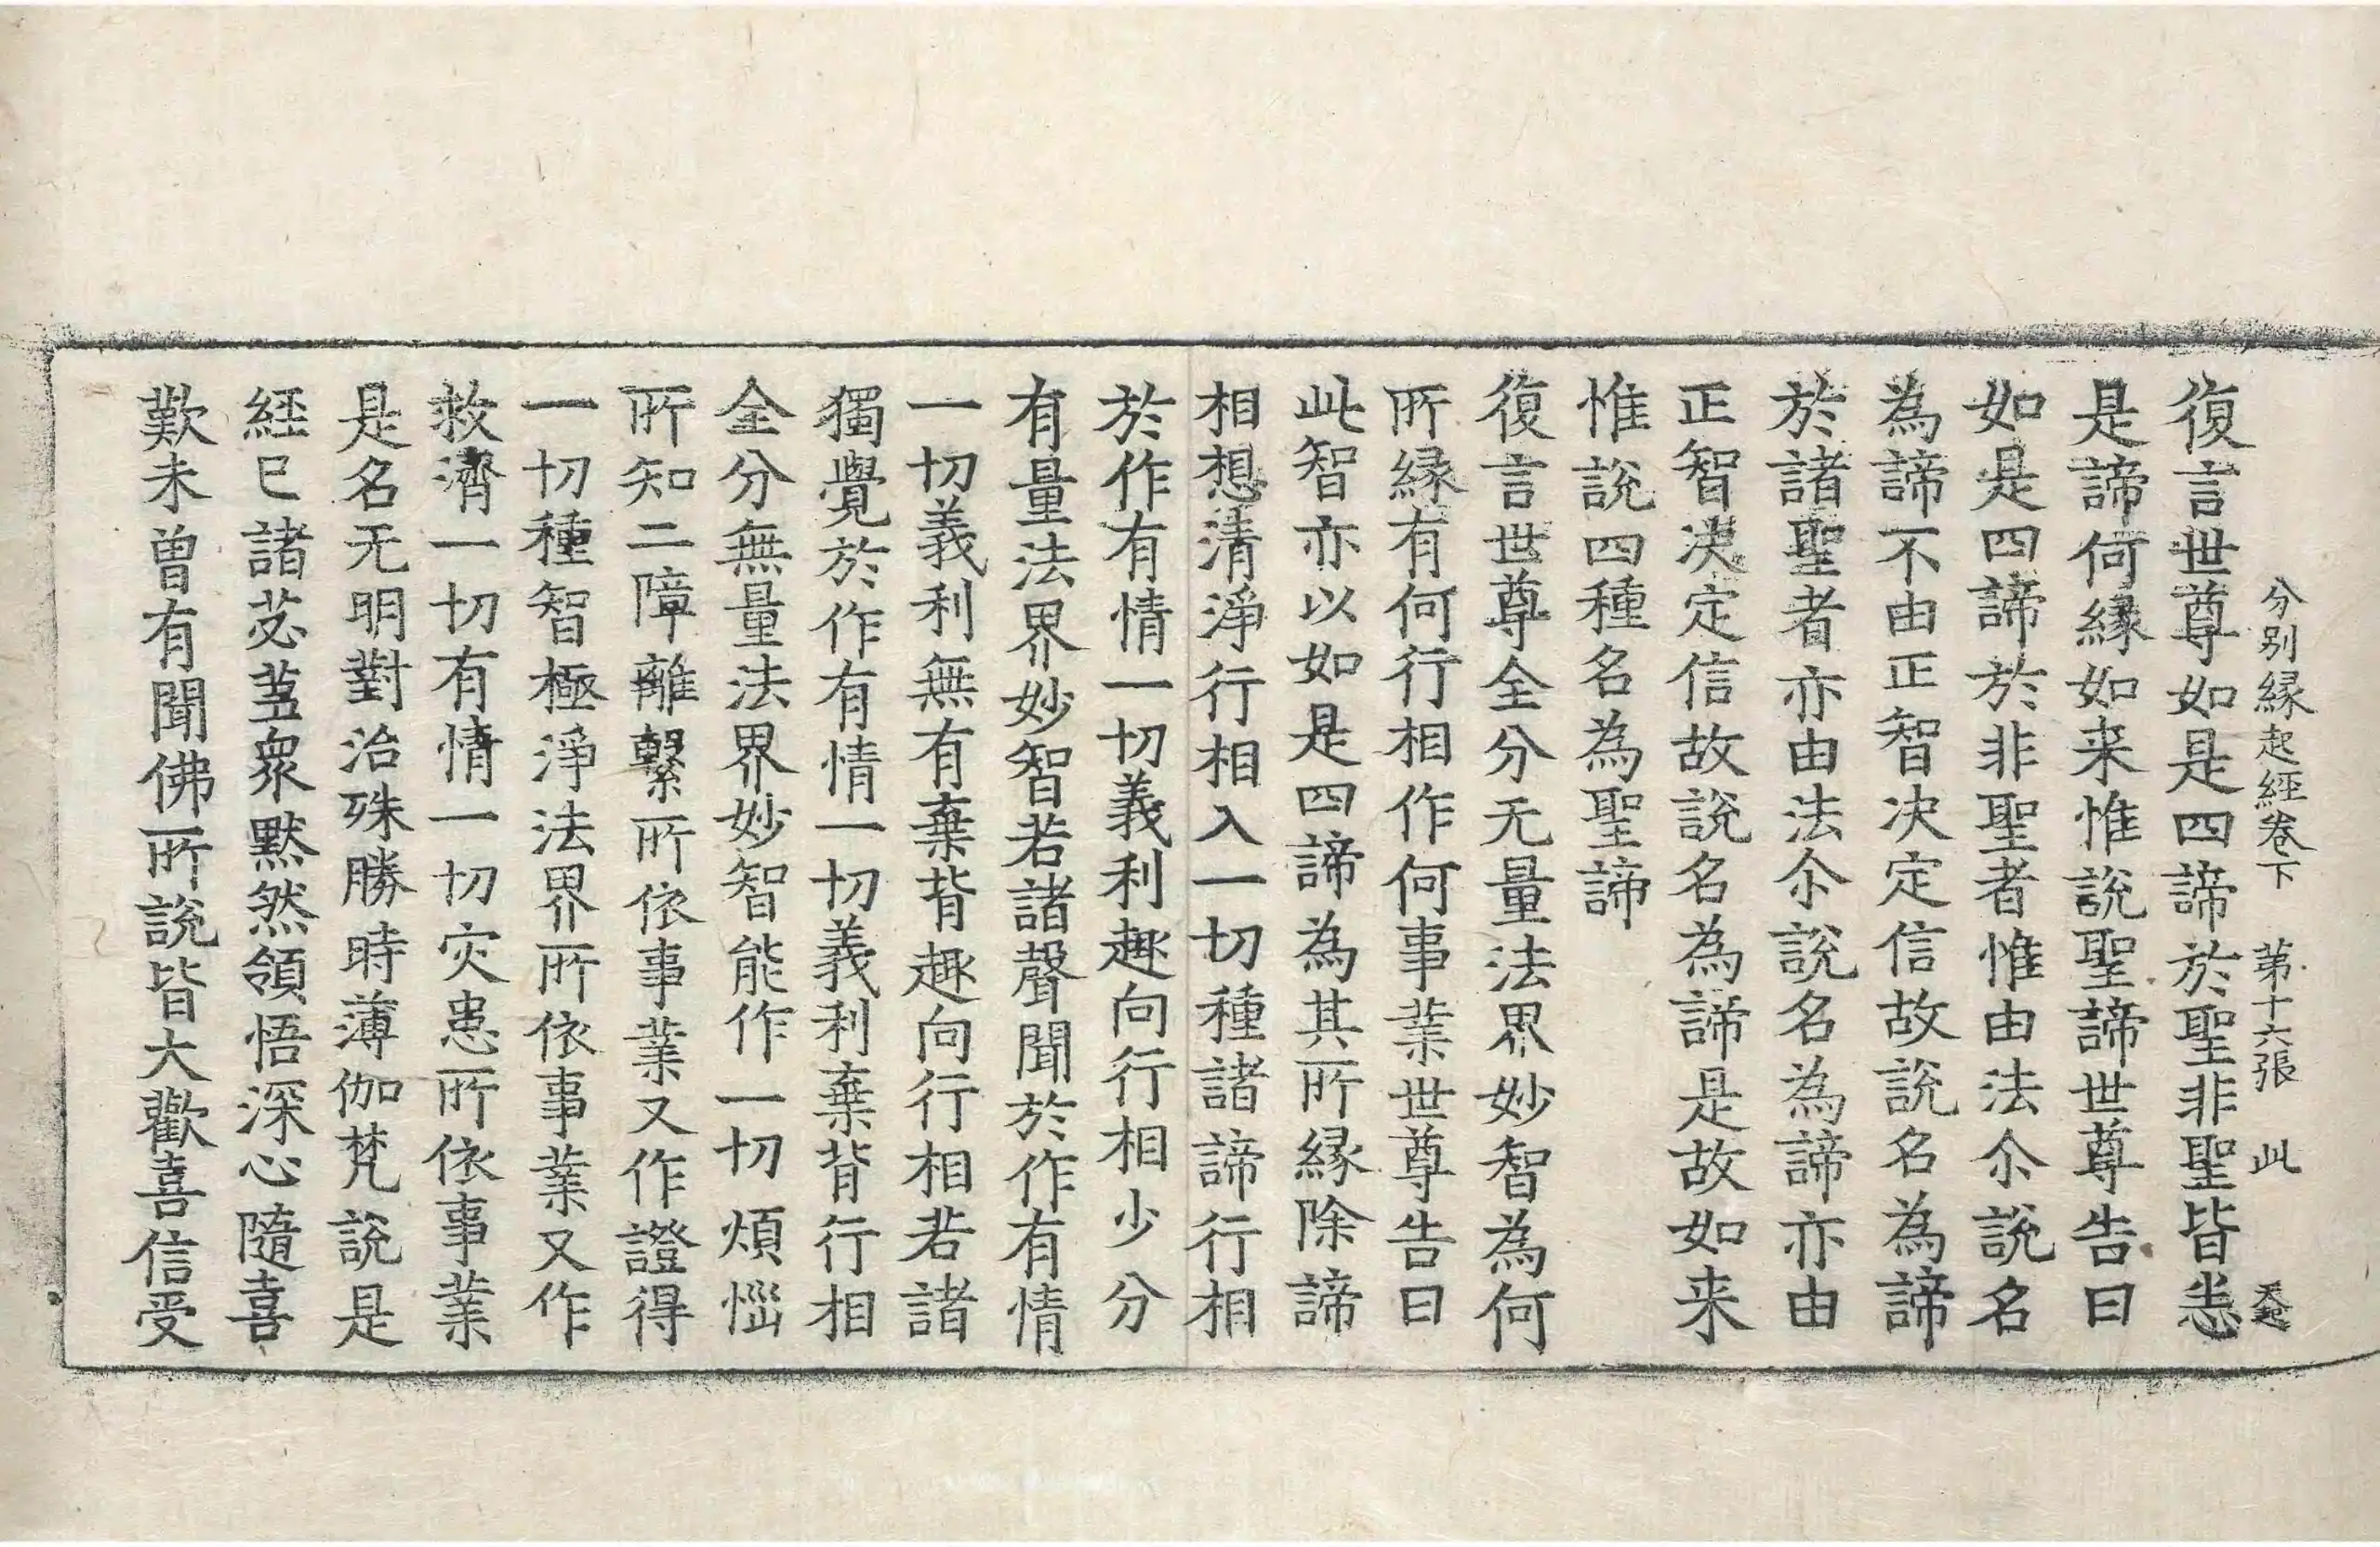 分别縁起經卷下　第十六張　此
復言世尊如是四諦於聖非聖皆悉
是諦何縁如来惟說聖諦世尊告曰
如是四諦於非聖者惟由法尒說名
為諦不由正智决定信故說名為諦
於諸聖者亦由法尒說名為諦亦由
正智决定信故說名為諦是故如来
惟說四種名為聖諦
復言世尊全分无量法界妙智為何
所縁有何行相作何事業世尊告曰
此智亦以如是四諦為其所縁除諦
相想清淨行相入一切種諸諦行相
於作有情一切義利趣向行相少分
有量法界妙智若諸聲聞於作有情
一切義利無有棄背趣向行相若諸
獨覺於作有情一切義利棄背行相
全分無量法界妙智能作一切煩惱
所知二障離繫所依事業又作證得
一切種智極淨法界所依事業又作
救濟一切有情一切灾患所依事業
是名无明對治殊勝時薄伽梵說是
經已諸苾蒭衆默然領悟深心隨喜
歎未曾有聞佛所說皆大歡喜信受